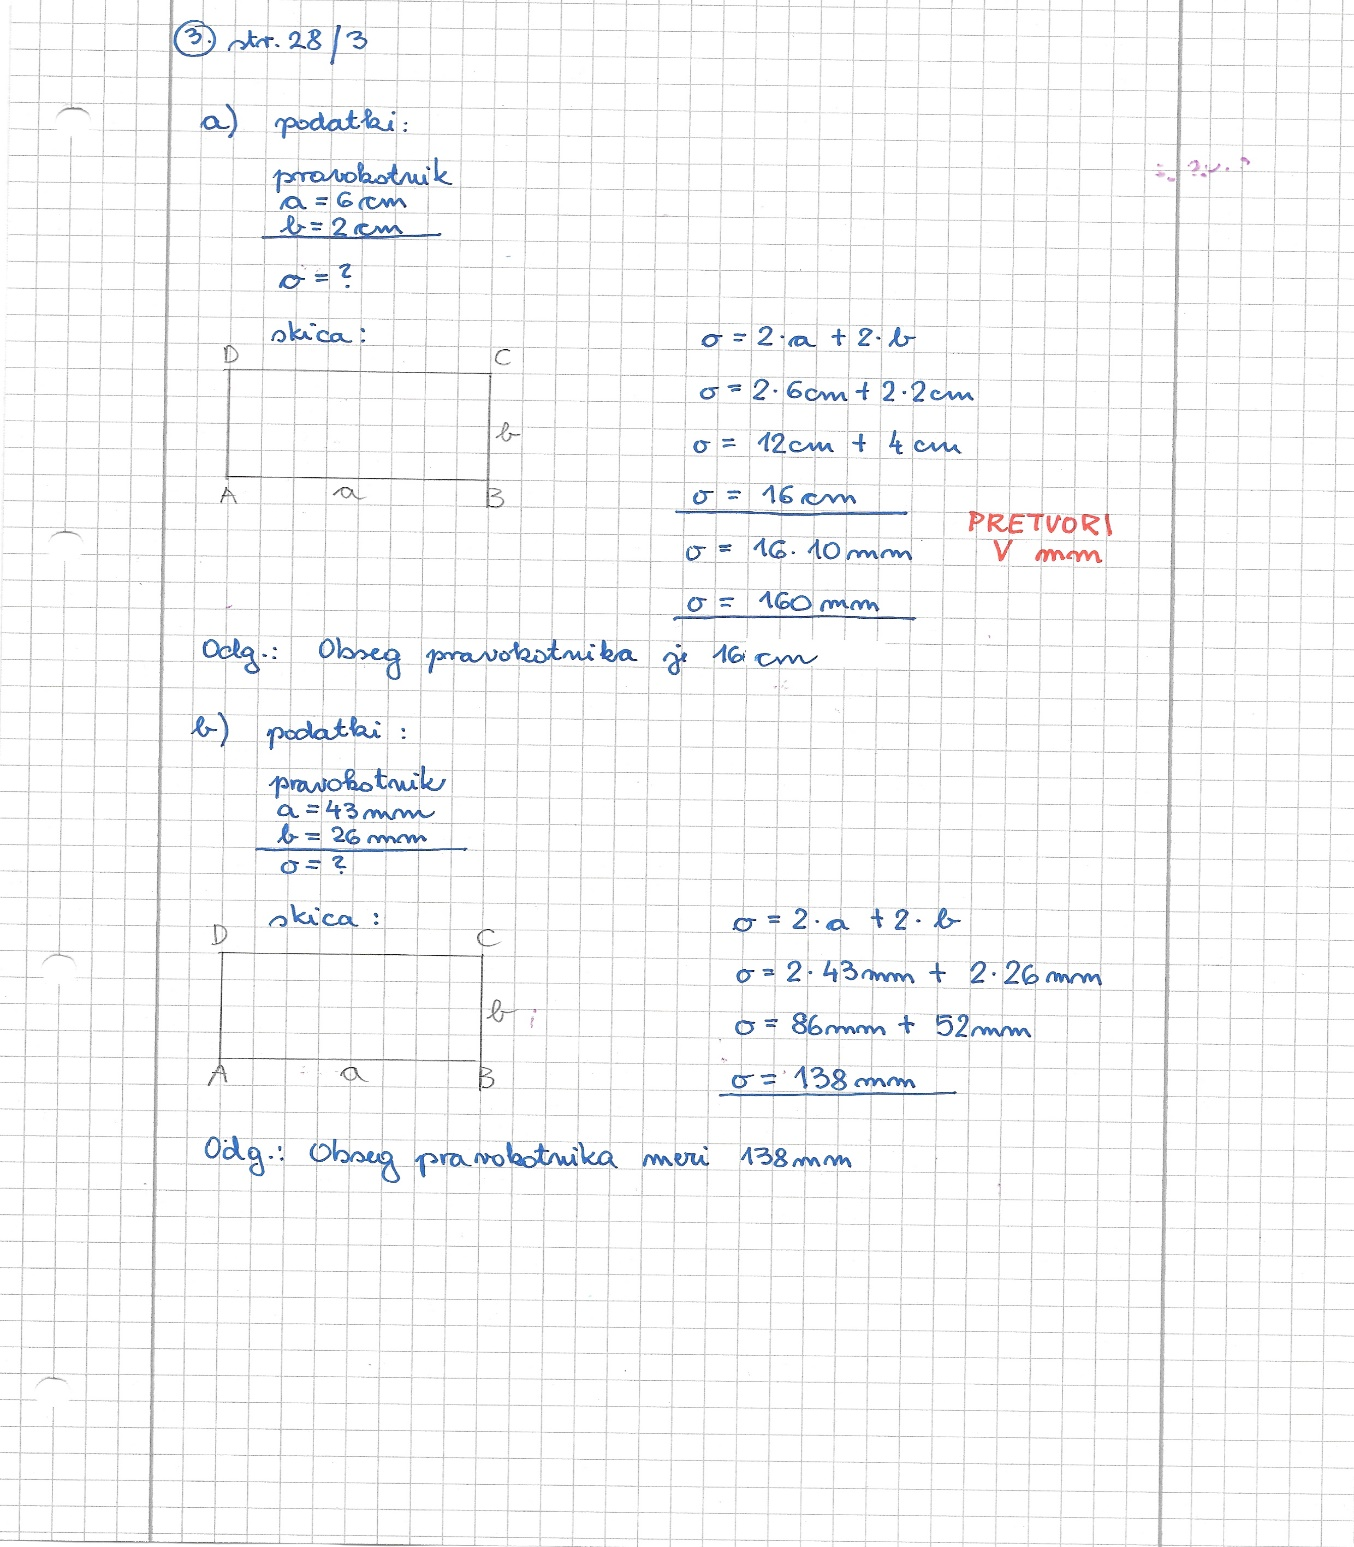 3. str. 28/3
a) podatki:
pravokotnik
a = 6 cm
b = 2 cm
o = ?
skica:
D C
b
A a B
o = 2·a + 2·b
o = 2·6cm + 2·2cm
o = 12cm + 4cm
o = 16cm
o = 16·10mm
o = 160mm
PRETVORI
V mm
Odg.: Obseg pravokotnika je 16 cm
b) podatki:
pravokotnik
a = 43mm
b = 26mm
o = ?
skica:
D C
b
A a B
o = 2·a + 2·b
o = 2·43mm + 2·26mm
o = 86mm + 52mm
o = 138mm
Odg.: Obseg pravokotnika meri 138mm